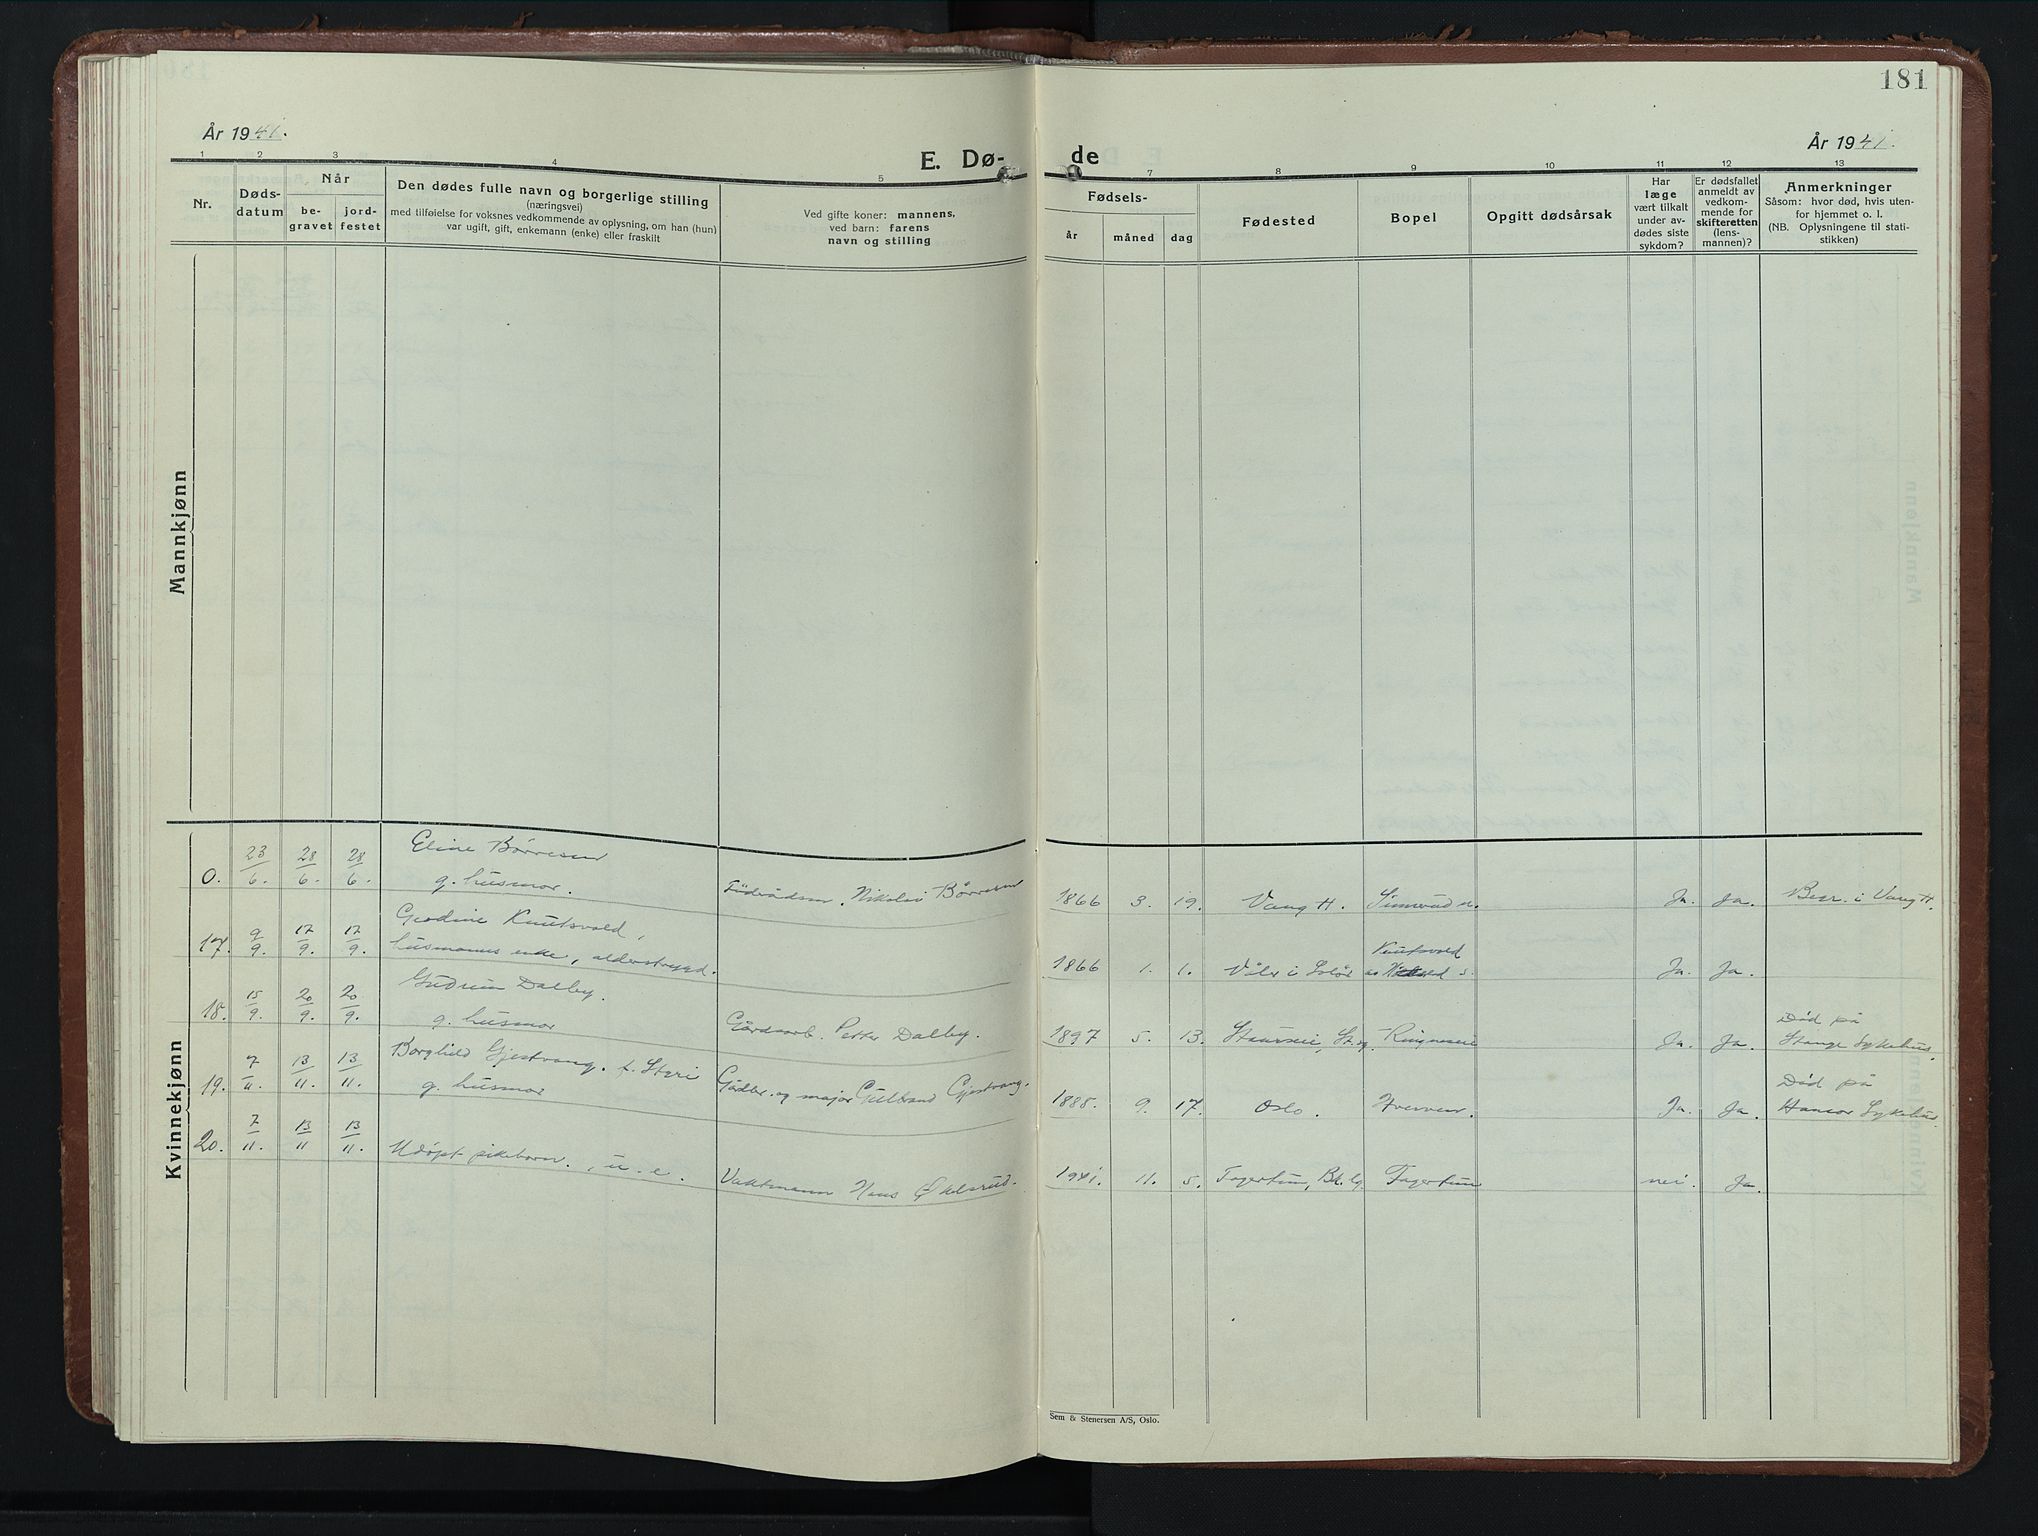 181
År 1941.
År 1941.
E. Dø-
de
1 2 3 4 5 7 8 9 10 11 12 13
Nr.
Døds-
datum
Når
be-
gravet
jord-
festet
Den dødes fulle navn og borgerlige stilling
(næringsvei)
med tilføielse for voksnes vedkommende av oplysning, om han (hun)
var ugift, gift, enkemann (enke) eller fraskilt
Ved gifte koner: mannens,
ved barn: farens
navn og stilling
Fødsels-
år måned dag
Fødested
Bopel
Opgitt dødsårsak
Har
læge
vært tilkalt
under av-
dødes siste
sykdom?
Er dødsfallet
anmeldt av
vedkom-
mende for
skifteretten
(lens-
mannen)?
Anmerkninger
Såsom: hvor død, hvis uten-
for hjemmet o. l.
(NB. Oplysningene til stati-
stikken)
Mannkjønn
Kvinnekjønn
0. 23/6. 28/6. 28/6. Eline Børresen
g. husmor. Nikolai Børresen 1866 3. 19. Vang H. Ja. Ja. Begr. i Vang H.
17. 9/9. 12/9. 12/9. Knutsvold,
husmanns enke, alderstrygd. 1866 1. 1. Våler i Solør Knutsvold Ja. Ja.
18. 15/9. 20/9. 20/9. Gudrun Dalby.
g. husmor Gårdsarb. Petter Dalby. 1897 5. 13. Ringneseie Ja. Ja. Død på
Stange Sykehus.
19. 7/11. 13/11. 13/11. Borghild Gjestvang. f. Styri
g. husmor Gårdbr. og major Gulbrand Gjestvang. 1885. 9. 17. Oslo. Hverven. Ja. Ja. Død på
Hamar Sykehus
20. 7/11. 13/11 13/11. Udøpt pikebarn., u. e. Vaktmann Hans Økelsrud. 1941. 11. 5. Fagertun, Bk. lg. Fagertun nei. Ja.
Sem & Stenersen A/S, Oslo.